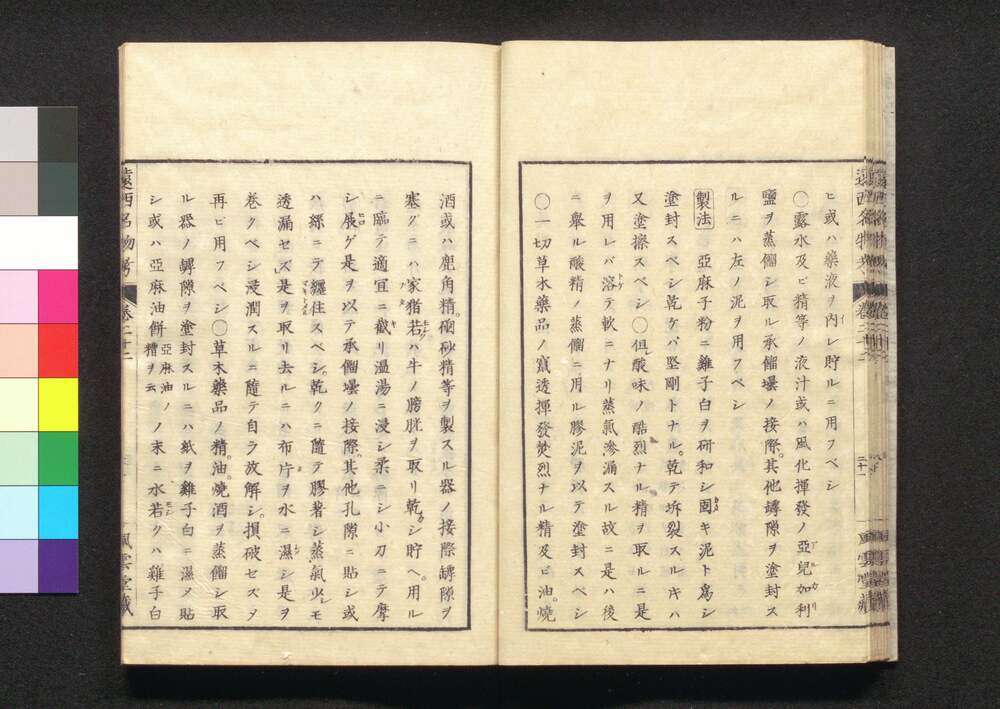 ヒ或ハ藥液ヲ內レ貯ルニ用フベシ
〇露水及ビ精等ノ液汁或ハ風化揮發ノ亞兒加利
鹽ヲ蒸餾シ取ル承餾壜ノ接際其他罅隙ヲ塗封ス
ルニハ左ノ泥ヲ用フベシ
製法 亞麻子粉ニ雞子白ヲ研和シ固キ泥ト爲シ
塗封スベシ乾ケバ堅剛トナル乾テ坼裂スルキハ
又塗擦スベシ〇但酸味ノ酷烈ナル精ヲ取ルニ是
ヲ用レバ溶テ軟ニナリ蒸氣滲漏スル故ニ是ハ後
ニ舉ル酸精ノ蒸餾ニ用ル膠泥ヲ以テ塗封スベシ
〇一切草木藥品ノ竄透揮發焚烈ナル精及ビ油燒
酒或ハ鹿角精硇砂精等ヲ製スル器ノ接際罅隙ヲ
塞グニハ家猪若ハ牛ノ膀胱ヲ取リ乾シ貯ヘ用ル
ニ臨テ適宜ニ截リ溫湯ニ浸シ柔ニシ小刀ニテ摩
シ展ゲ是ヲ以テ承餾壜ノ接際其他孔隙ニ貼シ或
ハ綵ニテ纏住スベシ乾クニ隨テ膠著シ蒸氣少モ
透漏セズ是ヲ取リ去ルニハ布片ヲ水ニ濕シ是ヲ
卷クベシ浸潤スルニ隨テ自ラ放解シ損破セズメ
再ビ用フベシ〇草木藥品ノ精油燒酒ヲ蒸餾シ取
ル器ノ罅隙ヲ塗封スルニハ紙ヲ雞子白ニ濕メ貼
シ或ハ亞麻油餅亞麻油ノ糟ヲ云ノ末ニ水若クハ雞子白
遠西名物考 卷二十二 風雲堂藏